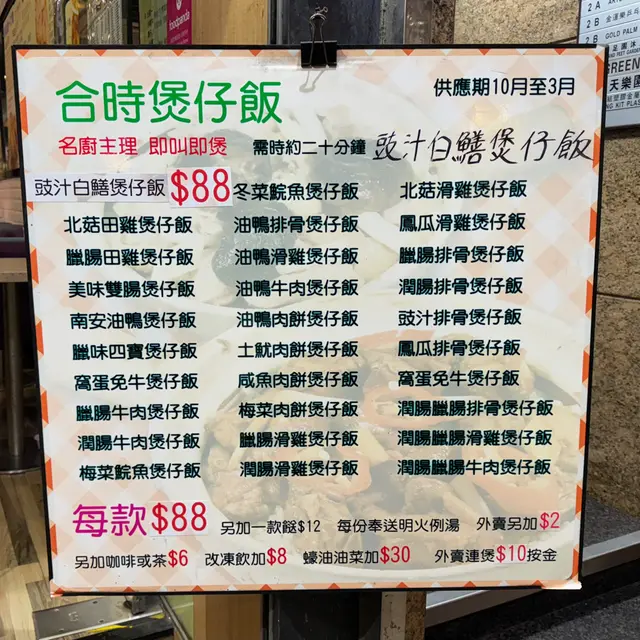 foodpanda
2 A
2 B
2 B GOLD PALM
供應期10月至3月
合時煲仔飯
名廚主理 即叫即煲 需時約二十分鐘 豉汁白鱔煲仔飯
豉汁白鱔煲仔飯 $88 冬菜鯇魚煲仔飯 北菇滑雞煲仔飯
北菇田雞煲仔飯 油鴨排骨煲仔飯 鳳瓜滑雞煲仔飯
臘腸田雞煲仔飯 油鴨滑雞煲仔飯 臘腸排骨煲仔飯
美味雙腸煲仔飯 油鴨牛肉煲仔飯 潤腸排骨煲仔飯
南安油鴨煲仔飯 油鴨肉餅煲仔飯 豉汁排骨煲仔飯
臘味四寶煲仔飯 土魷肉餅煲仔飯 鳳瓜排骨煲仔飯
窩蛋免牛煲仔飯 咸魚肉餅煲仔飯 窩蛋免牛煲仔飯
臘腸牛肉煲仔飯 梅菜肉餅煲仔飯 潤腸臘腸排骨煲仔飯
潤腸牛肉煲仔飯 臘腸滑雞煲仔飯 潤腸臘腸滑雞煲仔飯
梅菜鯇魚煲仔飯 潤腸滑雞煲仔飯 潤腸臘腸牛肉煲仔飯
每款$88 另加一款餸$12 每份奉送明火例湯 外賣另加$2
另加咖啡或茶$6 改凍飲加$8 蠔油油菜加$30 外賣連煲$10按金